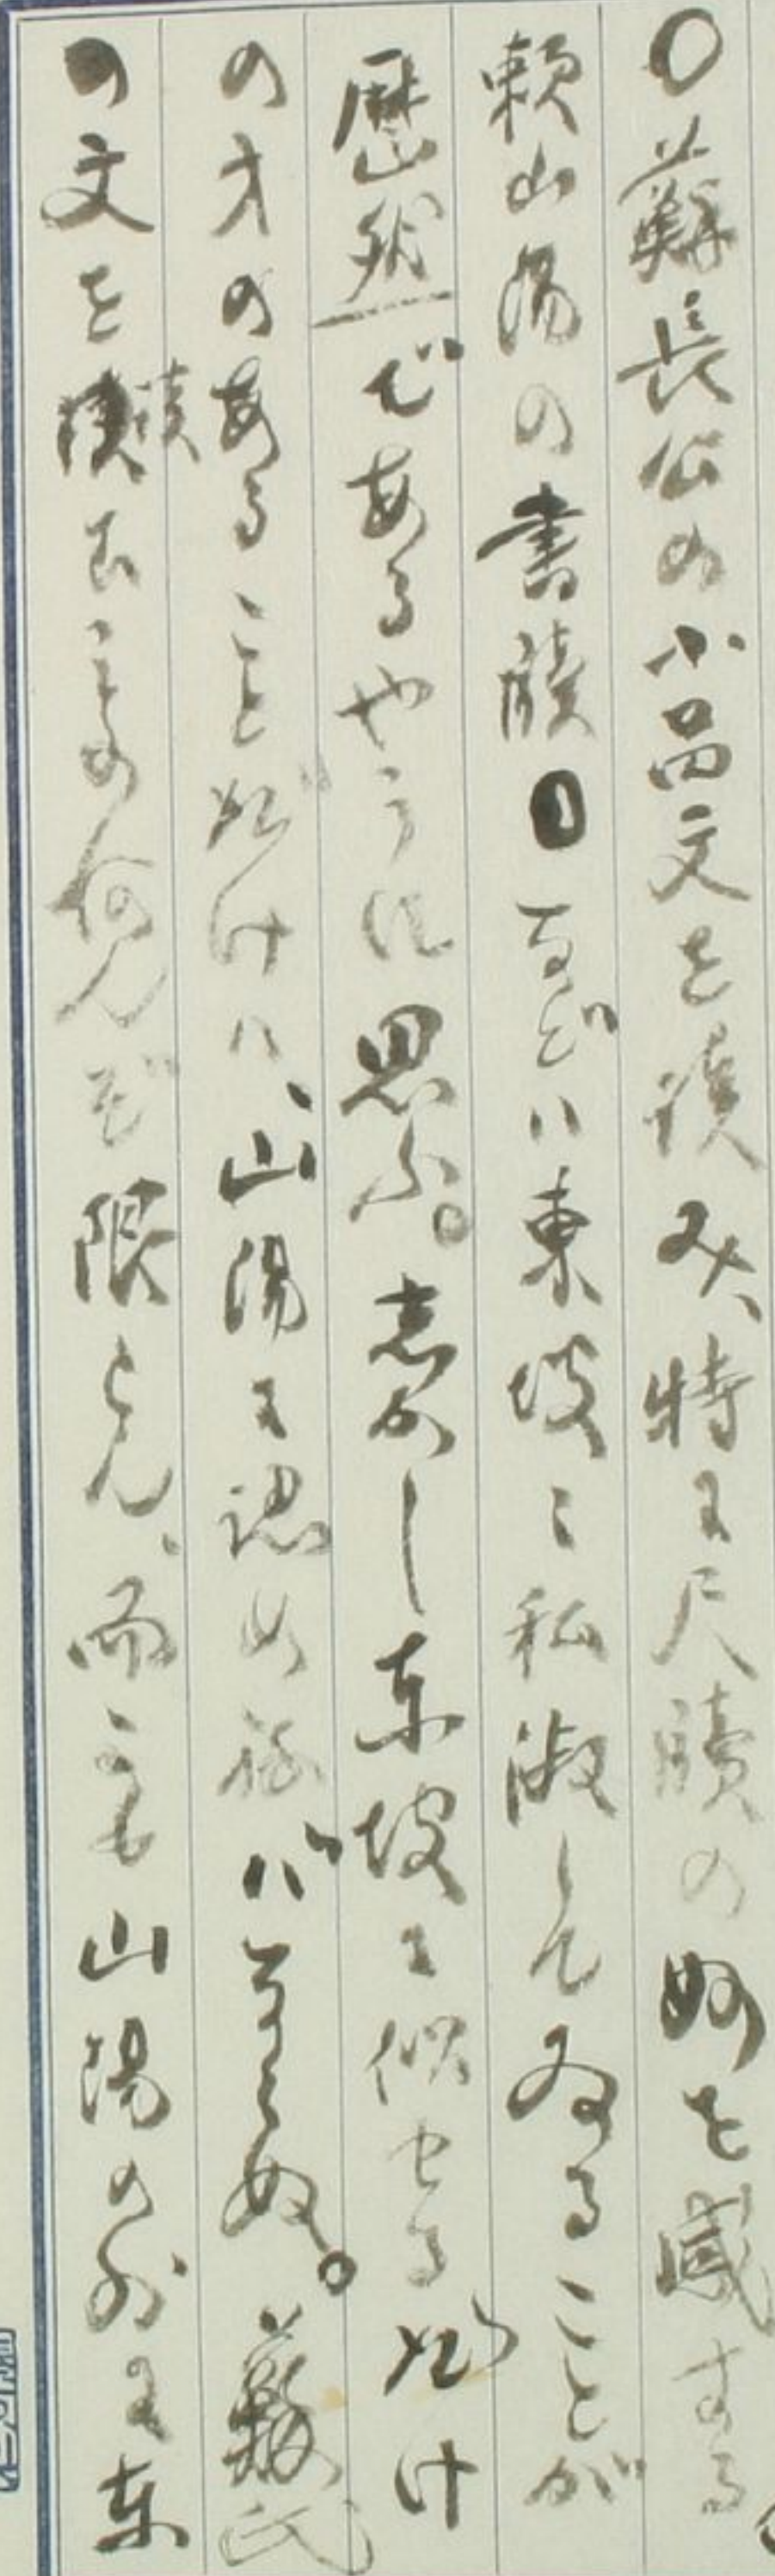 〇蘇長公の小品文を読み、特に尺牘の妙を感する
頼山陽の書牘などハ東坡に私淑してゐることが
歴然であるやうに思ふ。志かし東坡に似せるだけ
の才のあることだけハ、山陽に認め祢バならぬ。蘇氏
の文を讀むもの何んぞ限らん、而かも山陽の外に東